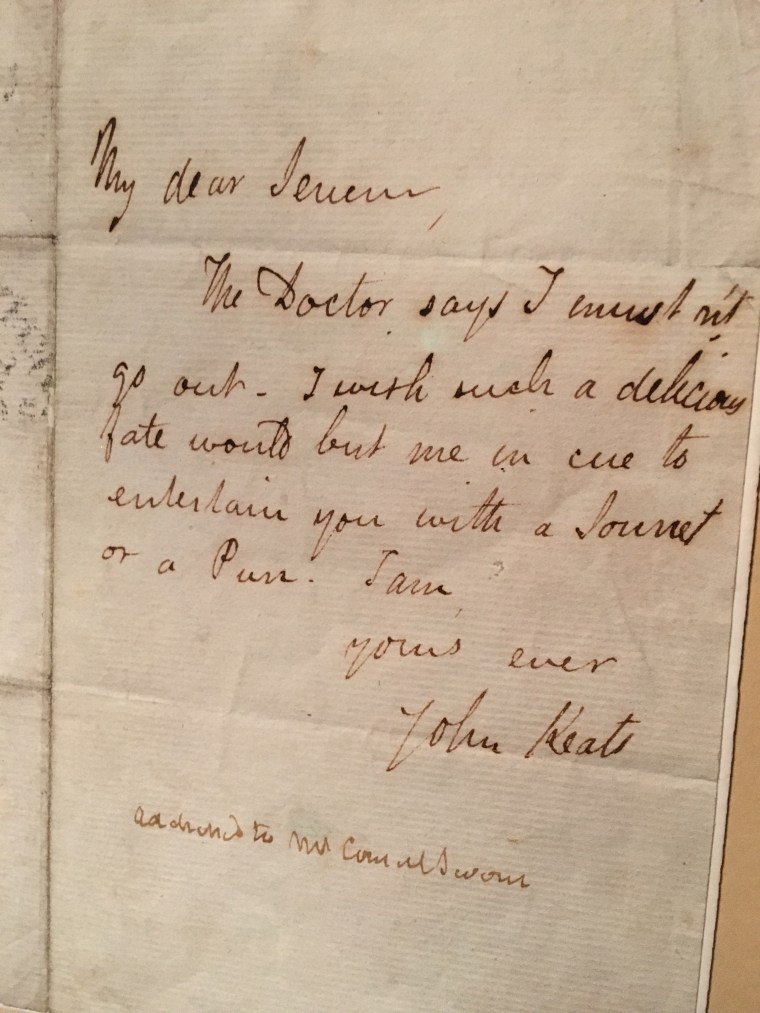 My dear Severn,
The Doctor says I must n't
go out - I wish such a delicious
fate would but me in cue to
entertain you with a Sonnet
or a Pun. I am
yours ever
John Keats
addressed to Mr